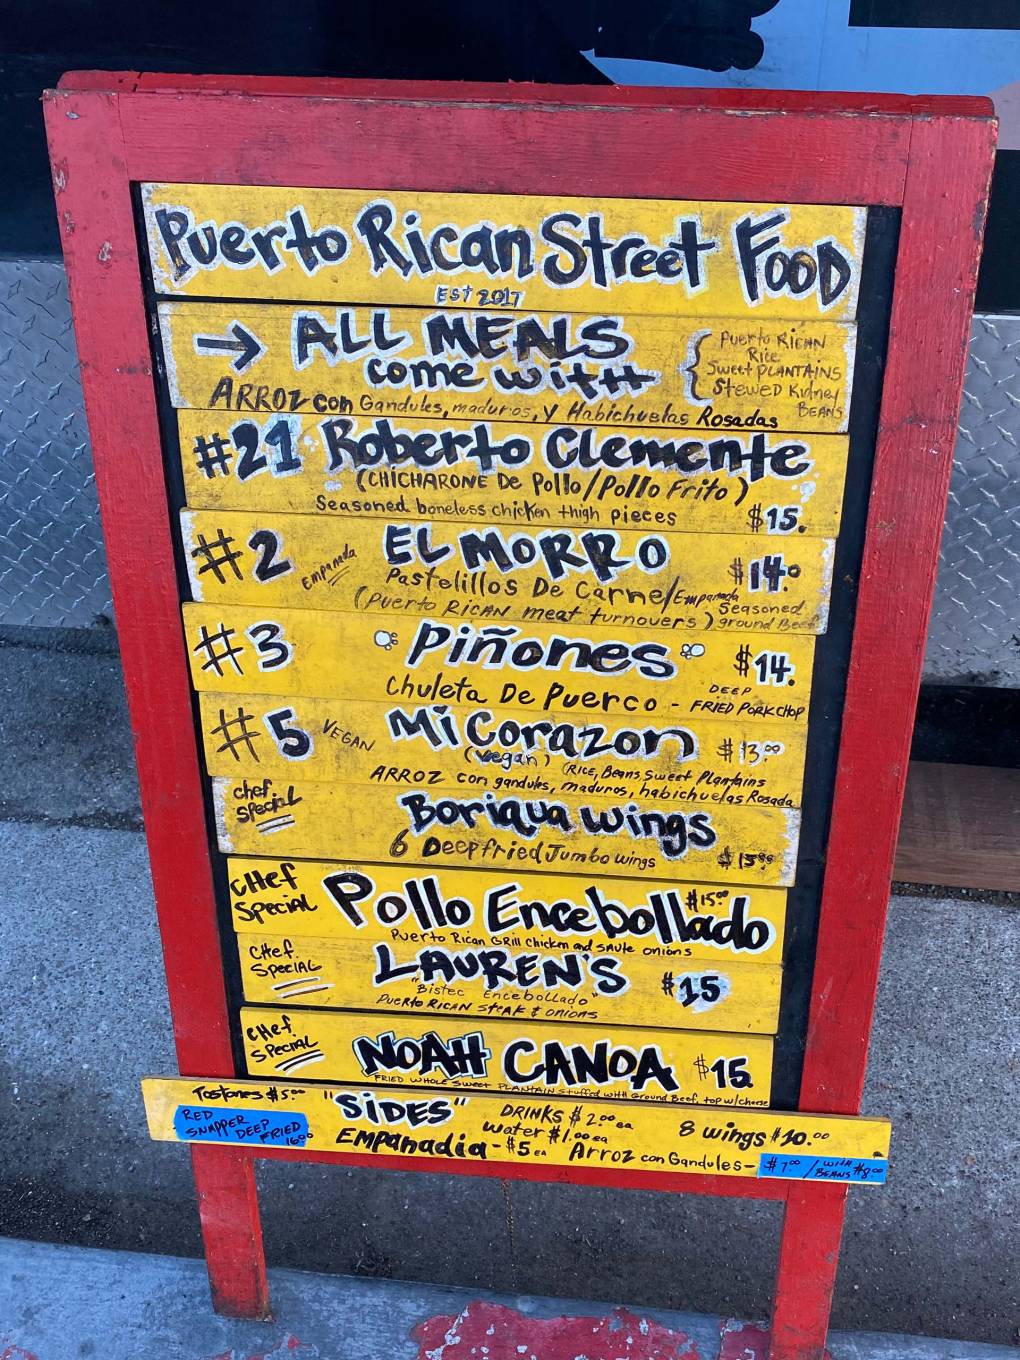 Puerto Rican Street Food
EST 2017
→ ALL MEALS
come with
{ Puerto Rican
Rice
Sweet PLANTAINS
Stewed Kidney
BEANS
ARROZ con Gandules, maduros, y Habichuelas Rosadas
#21 Roberto Clemente
(CHICHARONE De Pollo/Pollo Frito)
Seasoned boneless chicken thigh pieces $15.
#2 Empanada EL MORRO $14.0
Pastelillos De Carne/Empanada
(Puerto RICAN meat turnovers) Seasoned
ground Beef
#3 Piñones $14.
Chuleta De Puerco - DEEP
FRIED PORK CHOP
#5 VEGAN Mi Corazon $13.00
(vegan) (RICE, Beans, Sweet Plantains
ARROZ con gandules, maduros, habichuelas Rosada
chef Special Boriqua wings
6 Deep fried Jumbo wings
CHef Special Pollo Encebollado $15.00
Puerto Rican GRill chicken and saute onions
CHef. SPECIAL LAUREN'S $15
"Bistec Encebollado"
Puerto RICAN steak & onions
CHef. SPECIAL NOAH CANOA $15
FRIED WHOLE SWEET PLANTAIN stuffed with Ground Beef, top w/cheese
Tostones $5.00 "SIDES" DRINKS $2.00 ea 8 wings $10.00
RED
SNAPPER DEEP
FRIED
16.00
water $1.00 ea
Empanadia - $5 EA Arroz con Gandules - $7.00 / WITH BEANS $8.00